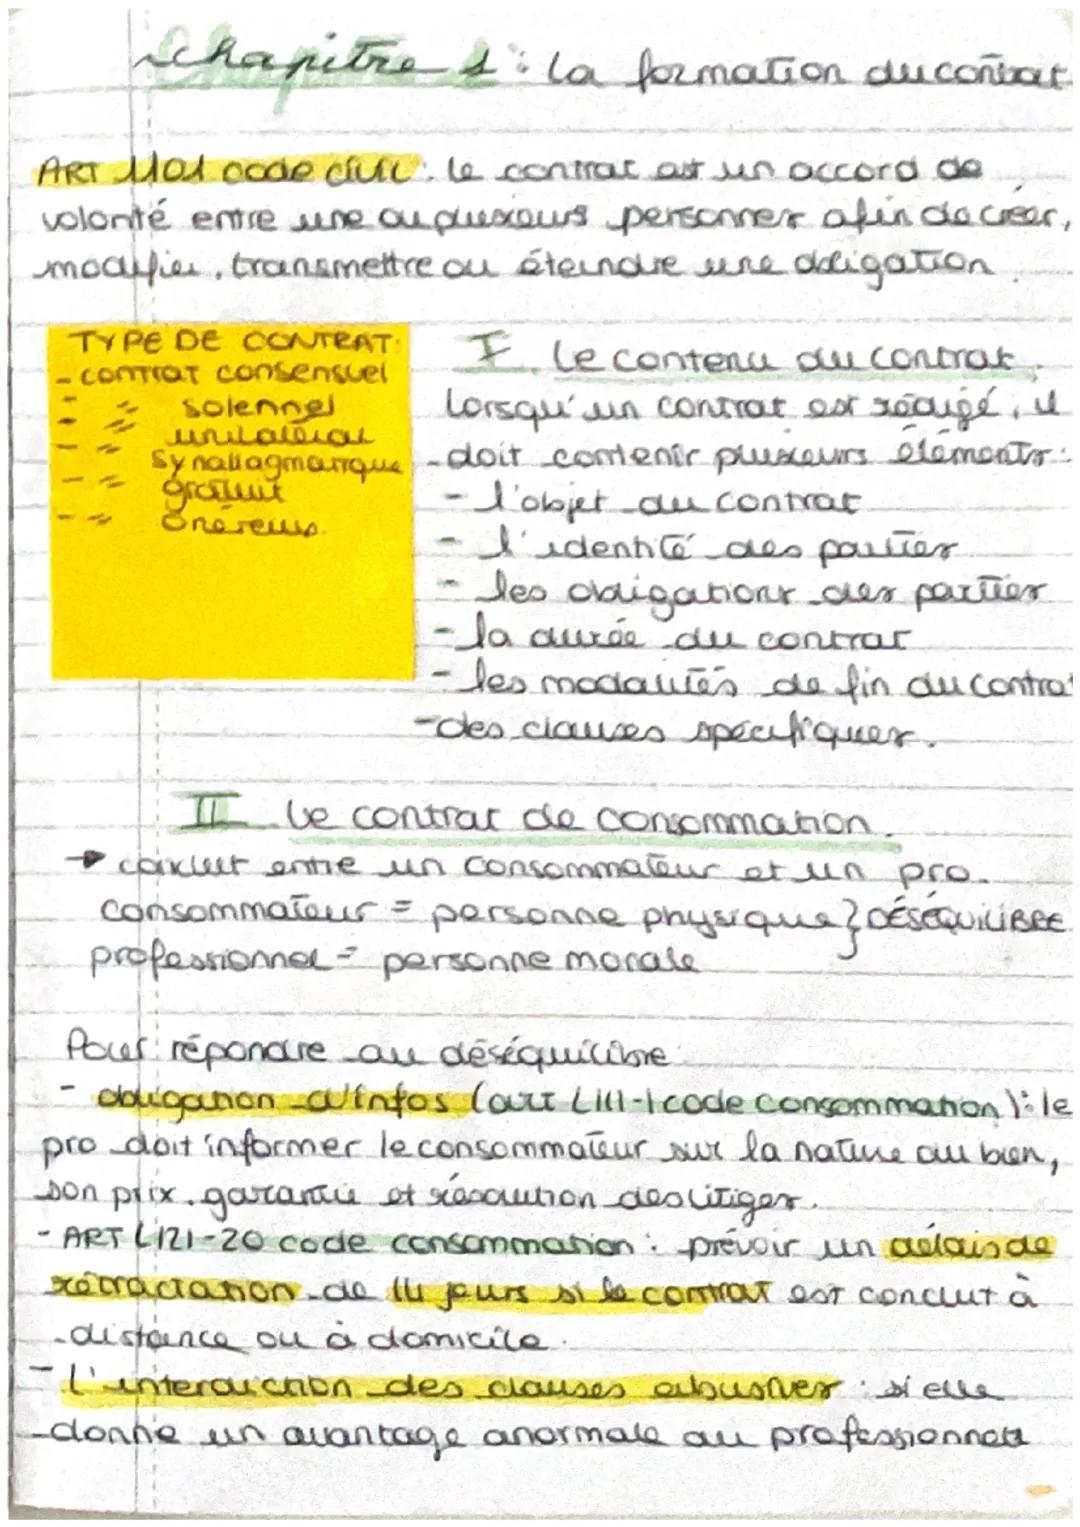 Chapitre 1 : la formation du contrat
ART 1101 code civil : le contrat est un accord de
volonté entre une ou plusieurs personnes afin de créer,
modifier, transmettre ou éteindre une obligation
TYPE DE CONTRAT:
- contrat consensuel
- " solennel
- " unilatéral
- " Synallagmatique
- " gratuit
- " Onéreux.
I. Le contenu du contrat.
Lorsqu'un contrat est rédigé, il
doit contenir plusieurs éléments :
- l'objet du contrat
- l'identité des parties
- les obligations des parties
- la durée du contrat
- les modalités de fin du contrat
- des clauses spécifiques.
II Le contrat de consommation.
→ conclut entre un consommateur et un pro.
consommateur = personne physique } DÉSÉQUILIBRE
professionnel = personne morale
Pour répondre au déséquilibre
- obligation d'infos (art L111-1 code consommation) : le
pro doit informer le consommateur sur la nature du bien,
son prix, garantie et résolution des litiges.
- ART L121-20 code consommation : prévoir un délais de
rétractation de 14 jours si le contrat est conclut à
distance ou à domicile.
- L'interdiction des clauses abusives : si elle
donne un avantage anormale au professionnel